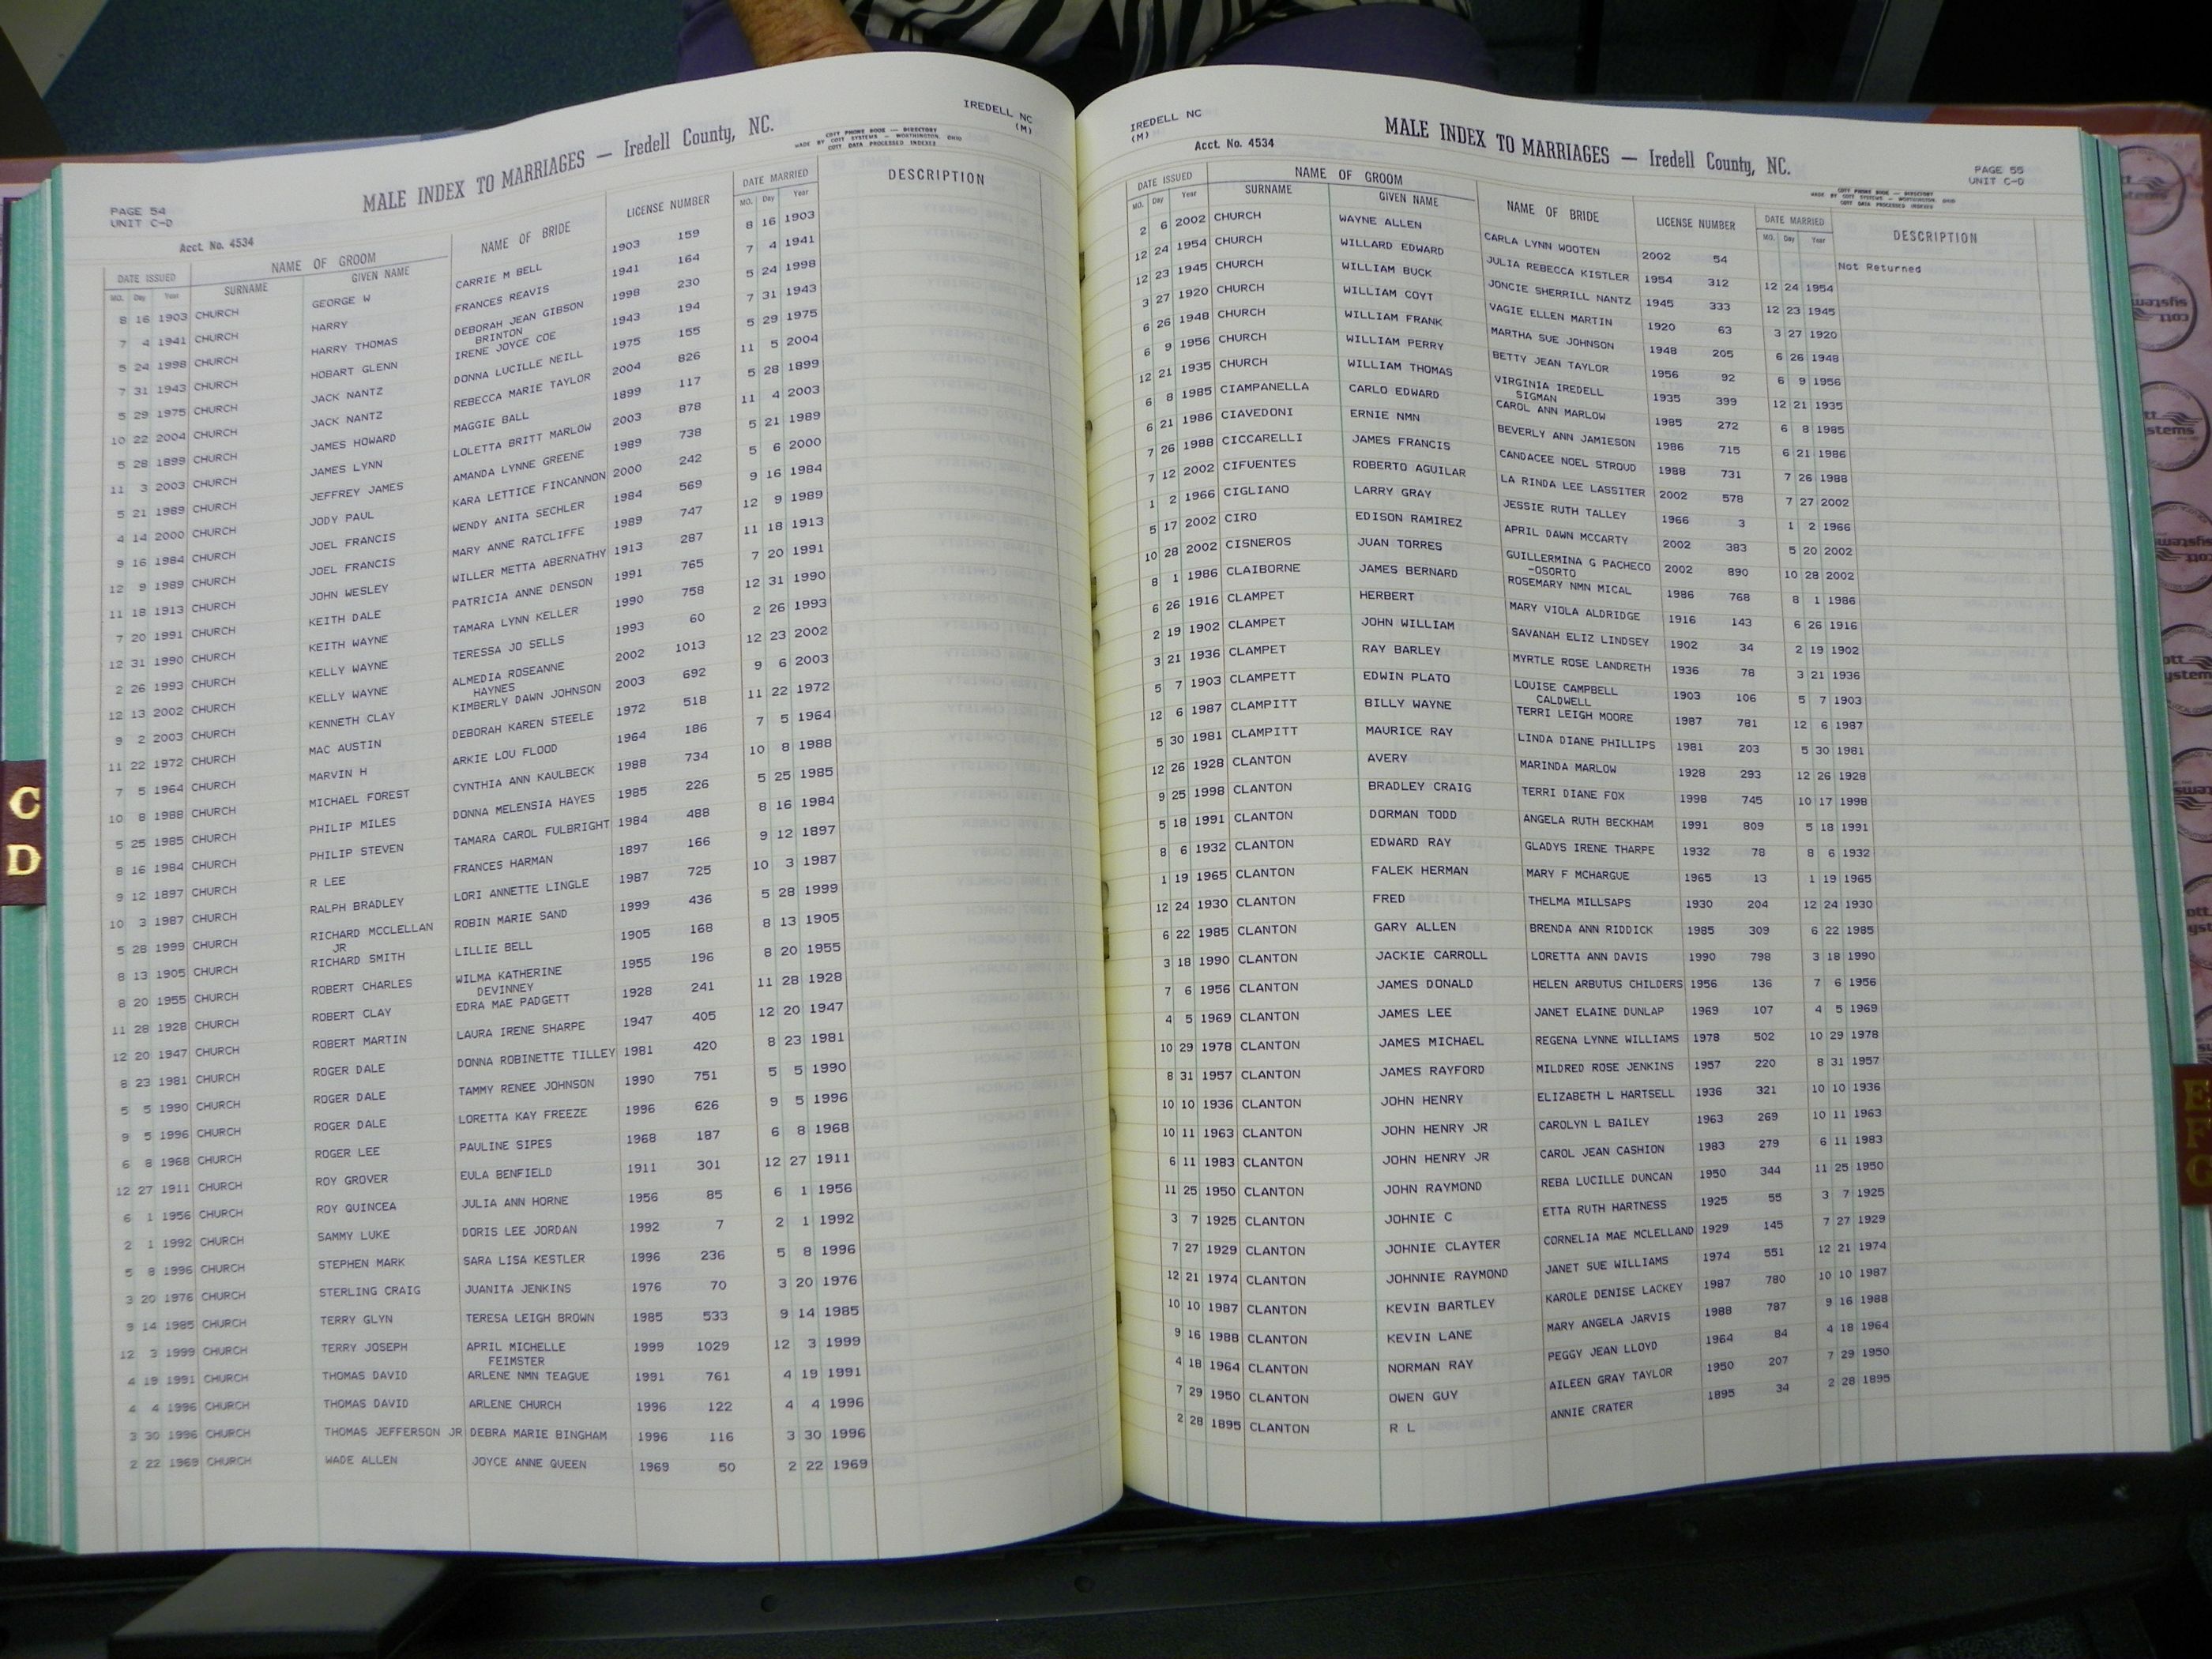 IREDELL NC
(M)
MALE INDEX TO MARRIAGES — Iredell County, NC.
MADE BY COTT PHONE BOOK — DIRECTORY
COTT SYSTEMS — WORTHINGTON, OHIO
COTT DATA PROCESSED INDEXES
PAGE 54
UNIT C-D
Acct. No. 4534
DATE ISSUED NAME OF GROOM NAME OF BRIDE LICENSE NUMBER DATE MARRIED DESCRIPTION
MO. Day Year SURNAME GIVEN NAME MO. Day Year
8 16 1903 CHURCH GEORGE W CARRIE M BELL 1903 159 8 16 1903
7 4 1941 CHURCH HARRY FRANCES REAVIS 1941 164 7 4 1941
5 24 1998 CHURCH HARRY THOMAS DEBORAH JEAN GIBSON 1998 230 5 24 1998
BRINTON
7 31 1943 CHURCH HOBART GLENN IRENE JOYCE COE 1943 194 7 31 1943
5 29 1975 CHURCH JACK NANTZ DONNA LUCILLE NEILL 1975 155 5 29 1975
10 22 2004 CHURCH JACK NANTZ REBECCA MARIE TAYLOR 2004 826 11 5 2004
5 28 1899 CHURCH JAMES HOWARD MAGGIE BALL 1899 117 5 28 1899
11 3 2003 CHURCH JAMES LYNN LOLETTA BRITT MARLOW 2003 878 11 4 2003
5 21 1989 CHURCH JEFFREY JAMES AMANDA LYNNE GREENE 1989 738 5 21 1989
4 14 2000 CHURCH JODY PAUL KARA LETTICE FINCANNON 2000 242 5 6 2000
9 16 1984 CHURCH JOEL FRANCIS WENDY ANITA SECHLER 1984 569 9 16 1984
12 9 1989 CHURCH JOEL FRANCIS MARY ANNE RATCLIFFE 1989 747 12 9 1989
11 18 1913 CHURCH JOHN WESLEY WILLER METTA ABERNATHY 1913 287 11 18 1913
7 20 1991 CHURCH KEITH DALE PATRICIA ANNE DENSON 1991 765 7 20 1991
12 31 1990 CHURCH KEITH WAYNE TAMARA LYNN KELLER 1990 758 12 31 1990
2 26 1993 CHURCH KELLY WAYNE TERESSA JO SELLS 1993 60 2 26 1993
12 13 2002 CHURCH KELLY WAYNE ALMEDIA ROSEANNE 2002 1013 12 23 2002
HAYNES
9 2 2003 CHURCH KENNETH CLAY KIMBERLY DAWN JOHNSON 2003 692 9 6 2003
11 22 1972 CHURCH MAC AUSTIN DEBORAH KAREN STEELE 1972 518 11 22 1972
7 5 1964 CHURCH MARVIN H ARKIE LOU FLOOD 1964 186 7 5 1964
10 8 1988 CHURCH MICHAEL FOREST CYNTHIA ANN KAULBECK 1988 734 10 8 1988
5 25 1985 CHURCH PHILIP MILES DONNA MELENSIA HAYES 1985 226 5 25 1985
8 16 1984 CHURCH PHILIP STEVEN TAMARA CAROL FULBRIGHT 1984 488 8 16 1984
9 12 1897 CHURCH R LEE FRANCES HARMAN 1897 166 9 12 1897
10 3 1987 CHURCH RALPH BRADLEY LORI ANNETTE LINGLE 1987 725 10 3 1987
5 28 1999 CHURCH RICHARD MCCLELLAN ROBIN MARIE SAND 1999 436 5 28 1999
JR
8 13 1905 CHURCH RICHARD SMITH LILLIE BELL 1905 168 8 13 1905
8 20 1955 CHURCH ROBERT CHARLES WILMA KATHERINE 1955 196 8 20 1955
DEVINNEY
11 28 1928 CHURCH ROBERT CLAY EDRA MAE PADGETT 1928 241 11 28 1928
12 20 1947 CHURCH ROBERT MARTIN LAURA IRENE SHARPE 1947 405 12 20 1947
8 23 1981 CHURCH ROGER DALE DONNA ROBINETTE TILLEY 1981 420 8 23 1981
5 5 1990 CHURCH ROGER DALE TAMMY RENEE JOHNSON 1990 751 5 5 1990
9 5 1996 CHURCH ROGER DALE LORETTA KAY FREEZE 1996 626 9 5 1996
6 8 1968 CHURCH ROGER LEE PAULINE SIPES 1968 187 6 8 1968
12 27 1911 CHURCH ROY GROVER EULA BENFIELD 1911 301 12 27 1911
6 1 1956 CHURCH ROY QUINCEA JULIA ANN HORNE 1956 85 6 1 1956
2 1 1992 CHURCH SAMMY LUKE DORIS LEE JORDAN 1992 7 2 1 1992
5 8 1996 CHURCH STEPHEN MARK SARA LISA KESTLER 1996 236 5 8 1996
3 20 1976 CHURCH STERLING CRAIG JUANITA JENKINS 1976 70 3 20 1976
9 14 1985 CHURCH TERRY GLYN TERESA LEIGH BROWN 1985 533 9 14 1985
12 3 1999 CHURCH TERRY JOSEPH APRIL MICHELLE 1999 1029 12 3 1999
FEIMSTER
4 19 1991 CHURCH THOMAS DAVID ARLENE NMN TEAGUE 1991 761 4 19 1991
4 4 1996 CHURCH THOMAS DAVID ARLENE CHURCH 1996 122 4 4 1996
3 30 1996 CHURCH THOMAS JEFFERSON JR DEBRA MARIE BINGHAM 1996 116 3 30 1996
2 22 1969 CHURCH WADE ALLEN JOYCE ANNE QUEEN 1969 50 2 22 1969
C
D
IREDELL NC
(M)
Acct. No. 4534
MALE INDEX TO MARRIAGES — Iredell County, NC.
PAGE 55
UNIT C-D
MADE BY COTT PHONE BOOK — DIRECTORY
COTT SYSTEMS — WORTHINGTON, OHIO
COTT DATA PROCESSED INDEXES
DATE ISSUED NAME OF GROOM NAME OF BRIDE LICENSE NUMBER DATE MARRIED DESCRIPTION
MO. Day Year SURNAME GIVEN NAME MO. Day Year
2 6 2002 CHURCH WAYNE ALLEN CARLA LYNN WOOTEN 2002 54 Not Returned
12 24 1954 CHURCH WILLARD EDWARD JULIA REBECCA KISTLER 1954 312 12 24 1954
12 23 1945 CHURCH WILLIAM BUCK JONCIE SHERRILL NANTZ 1945 333 12 23 1945
3 27 1920 CHURCH WILLIAM COYT VAGIE ELLEN MARTIN 1920 63 3 27 1920
6 26 1948 CHURCH WILLIAM FRANK MARTHA SUE JOHNSON 1948 205 6 26 1948
6 9 1956 CHURCH WILLIAM PERRY BETTY JEAN TAYLOR 1956 92 6 9 1956
12 21 1935 CHURCH WILLIAM THOMAS VIRGINIA IREDELL 1935 399 12 21 1935
SIGMAN
6 8 1985 CIAMPANELLA CARLO EDWARD CAROL ANN MARLOW 1985 272 6 8 1985
6 21 1986 CIAVEDONI ERNIE NMN BEVERLY ANN JAMIESON 1986 715 6 21 1986
7 26 1988 CICCARELLI JAMES FRANCIS CANDACEE NOEL STROUD 1988 731 7 26 1988
7 12 2002 CIFUENTES ROBERTO AGUILAR LA RINDA LEE LASSITER 2002 578 7 27 2002
1 2 1966 CIGLIANO LARRY GRAY JESSIE RUTH TALLEY 1966 3 1 2 1966
5 17 2002 CIRO EDISON RAMIREZ APRIL DAWN MCCARTY 2002 383 5 20 2002
10 28 2002 CISNEROS JUAN TORRES GUILLERMINA G PACHECO 2002 890 10 28 2002
-OSORTO
8 1 1986 CLAIBORNE JAMES BERNARD ROSEMARY NMN MICAL 1986 768 8 1 1986
6 26 1916 CLAMPET HERBERT MARY VIOLA ALDRIDGE 1916 143 6 26 1916
2 19 1902 CLAMPET JOHN WILLIAM SAVANAH ELIZ LINDSEY 1902 34 2 19 1902
3 21 1936 CLAMPET RAY BARLEY MYRTLE ROSE LANDRETH 1936 78 3 21 1936
5 7 1903 CLAMPETT EDWIN PLATO LOUISE CAMPBELL 1903 106 5 7 1903
CALDWELL
12 6 1987 CLAMPITT BILLY WAYNE TERRI LEIGH MOORE 1987 781 12 6 1987
5 30 1981 CLAMPITT MAURICE RAY LINDA DIANE PHILLIPS 1981 203 5 30 1981
12 26 1928 CLANTON AVERY MARINDA MARLOW 1928 293 12 26 1928
9 25 1998 CLANTON BRADLEY CRAIG TERRI DIANE FOX 1998 745 10 17 1998
5 18 1991 CLANTON DORMAN TODD ANGELA RUTH BECKHAM 1991 809 5 18 1991
8 6 1932 CLANTON EDWARD RAY GLADYS IRENE THARPE 1932 78 8 6 1932
1 19 1965 CLANTON FALEK HERMAN MARY F MCHARGUE 1965 13 1 19 1965
12 24 1930 CLANTON FRED THELMA MILLSAPS 1930 204 12 24 1930
6 22 1985 CLANTON GARY ALLEN BRENDA ANN RIDDICK 1985 309 6 22 1985
3 18 1990 CLANTON JACKIE CARROLL LORETTA ANN DAVIS 1990 798 3 18 1990
7 6 1956 CLANTON JAMES DONALD HELEN ARBUTUS CHILDERS 1956 136 7 6 1956
4 5 1969 CLANTON JAMES LEE JANET ELAINE DUNLAP 1969 107 4 5 1969
10 29 1978 CLANTON JAMES MICHAEL REGENA LYNNE WILLIAMS 1978 502 10 29 1978
8 31 1957 CLANTON JAMES RAYFORD MILDRED ROSE JENKINS 1957 220 8 31 1957
10 10 1936 CLANTON JOHN HENRY ELIZABETH L HARTSELL 1936 321 10 10 1936
10 11 1963 CLANTON JOHN HENRY JR CAROLYN L BAILEY 1963 269 10 11 1963
6 11 1983 CLANTON JOHN HENRY JR CAROL JEAN CASHION 1983 279 6 11 1983
11 25 1950 CLANTON JOHN RAYMOND REBA LUCILLE DUNCAN 1950 344 11 25 1950
3 7 1925 CLANTON JOHNIE C ETTA RUTH HARTNESS 1925 55 3 7 1925
7 27 1929 CLANTON JOHNIE CLAYTER CORNELIA MAE MCLELLAND 1929 145 7 27 1929
12 21 1974 CLANTON JOHNNIE RAYMOND JANET SUE WILLIAMS 1974 551 12 21 1974
10 10 1987 CLANTON KEVIN BARTLEY KAROLE DENISE LACKEY 1987 780 10 10 1987
9 16 1988 CLANTON KEVIN LANE MARY ANGELA JARVIS 1988 787 9 16 1988
4 18 1964 CLANTON NORMAN RAY PEGGY JEAN LLOYD 1964 84 4 18 1964
7 29 1950 CLANTON OWEN GUY AILEEN GRAY TAYLOR 1950 207 7 29 1950
2 28 1895 CLANTON R L ANNIE CRATER 1895 34 2 28 1895
E
F
G